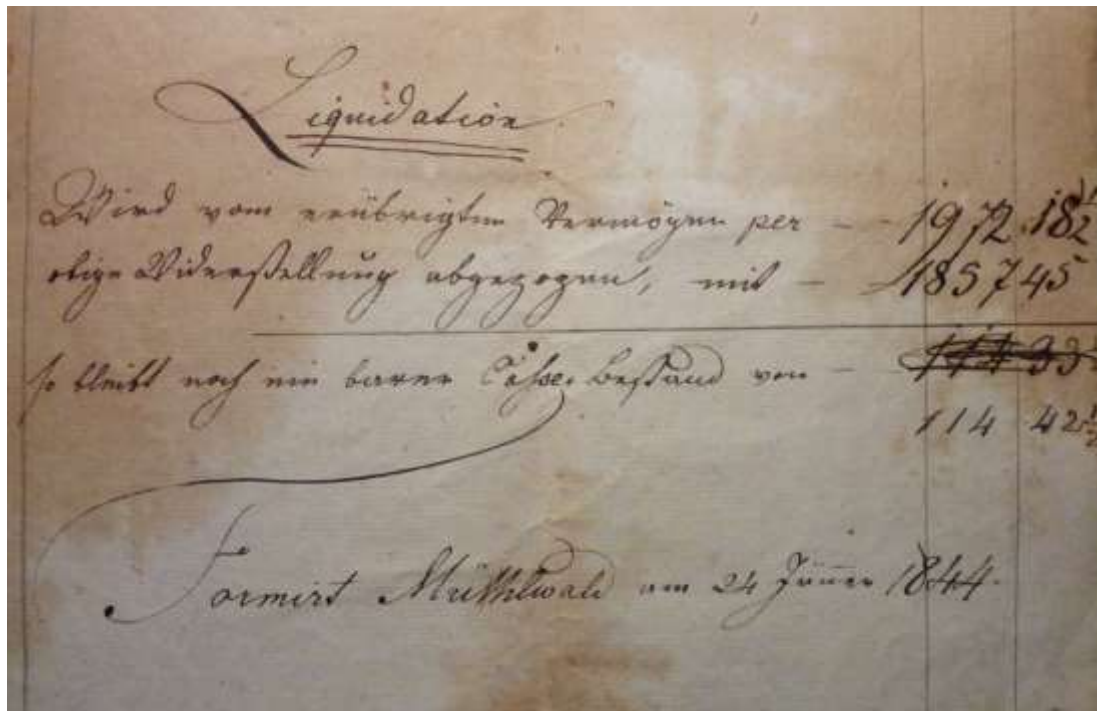 Liquidation.
Wird vom erübrigten Vermögen per — 1972 18½
obige Widerstellung abgezogen, mit — 1857 45
so bleibt noch ein barer Casse Bestand von —
114 42½
Formirt Mühlwald am 24 Jänner 1844.